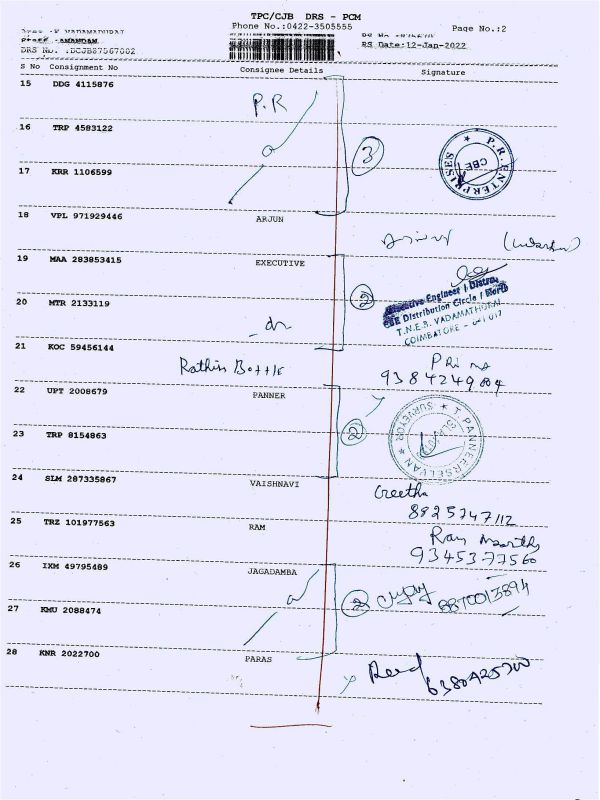 TPC/CJB DRS - PCM
Phone No.:0422-3505555
Page No.:2
Area :K VADAMADURAI
ANANDAN
DRS No. :DCJB87067002
RS Date:12-Jan-2022
S No Consignment No Consignee Details Signature
15 DDG 4115876
P.R
16 TRP 4583122
3
P.R. ENTERPRISES
CBE
17 KRR 1106599
18 VPL 971929446 ARJUN
19 MAA 283853415 EXECUTIVE
2
Executive Engineer / Distrn.
CBE Distribution Circle / North
T.N.E.B. VADAMATHURAI
COIMBATORE
20 MTR 2133119
21 KOC 59456144
Rathin Bottle
9384249604
22 UPT 2008679 PANNER
2
T. PANNEERSELVAN
SURVEYOR
23 TRP 8154863
24 SLM 287335867 VAISHNAVI
Geetha
8825747112
25 TRZ 101977563 RAM
Ram
9345377560
26 IXM 49795489 JAGADAMBA
2
8870013894
27 KMU 2088474
28 KNR 2022700 PARAS